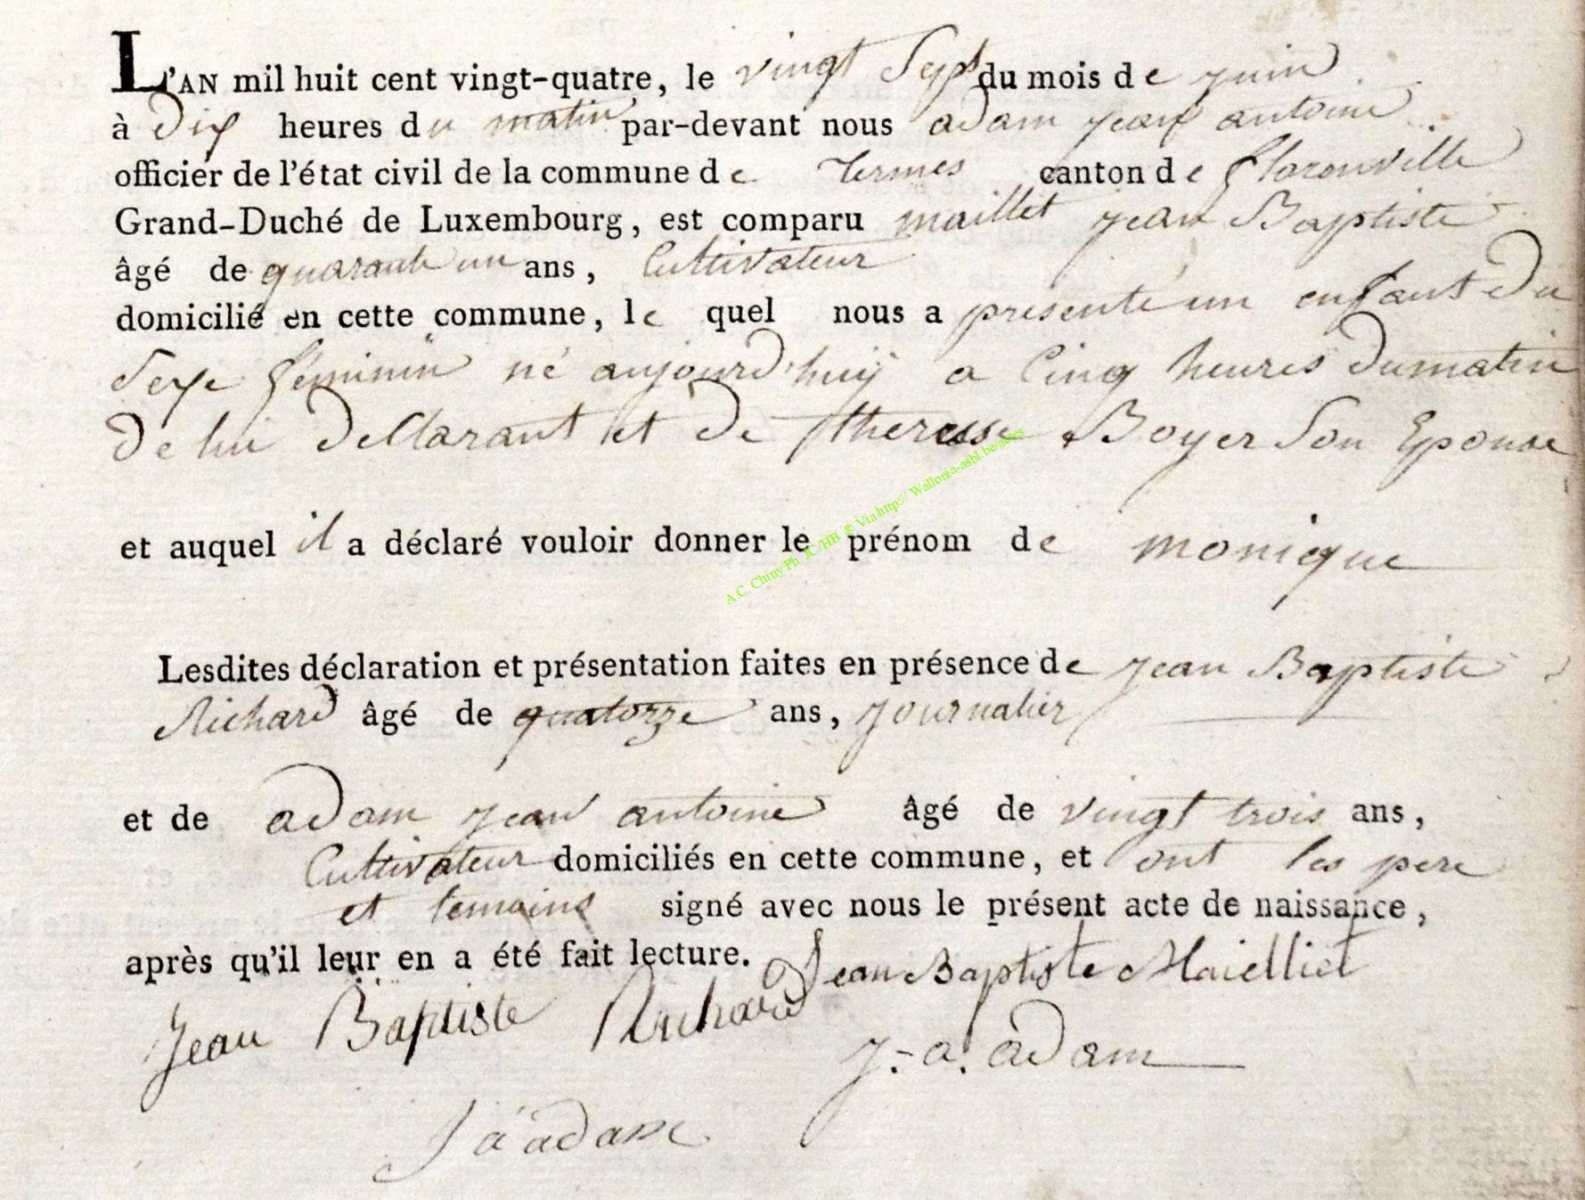 L'AN mil huit cent vingt-quatre, le vingt Sept du mois de juin
à dix heures du matin par-devant nous adam jean antoine
officier de l'état civil de la commune de termes canton de florenville
Grand-Duché de Luxembourg, est comparu maillet jean Baptiste
âgé de quarante un ans, Cultivateur
domicilié en cette commune, le quel nous a présenté un enfant du
Sexe féminin né aujourd'huÿ a Cinq heures du matin
de lui declarant et de therese Boyer Son Epouse
et auquel il a déclaré vouloir donner le prénom de monique
A.C. Chiny-Ph. JC/HB & Via http:// Wallonia-asbl.be
Lesdites déclaration et présentation faites en présence de jean Baptiste
Richard âgé de quatorze ans, journalier
et de adam jean antoine âgé de vingt trois ans,
Cultivateur domiciliés en cette commune, et ont les pere
et temoins signé avec nous le présent acte de naissance,
après qu'il leur en a été fait lecture. Jean Baptiste Maielliet
Jean Baptiste Richard
j.-a. adam
J a adam